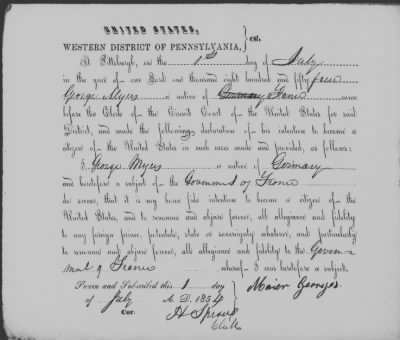 UNITED STATES,
WESTERN DISTRICT OF PENNSYLVANIA, } ss.
At Pittsburgh, on the 1st day of July
in the year of our Lord one thousand eight hundred and fifty four
George Myers a native of Germany France came
before the Clerk of the Circuit Court of the United States for said
District, and made the following declaration of his intention to become a
citizen of the United States in such cases made and provided, as follows:
I George Myers a native of Germany
and heretofore a subject of the Government of France
do swear, that it is my bona fide intention to become a citizen of the
United States, and to renounce and abjure forever, all allegiance and fidelity
to any foreign prince, potentate, state or sovereignty whatever, and particularly
to renounce and abjure forever, all allegiance and fidelity to the Govern-
ment of France whereof I was heretofore a subject.
Sworn and Subscribed this 1 day
of July A. D. 1854
Cor.
Maier Georges
H Sproul
Clerk